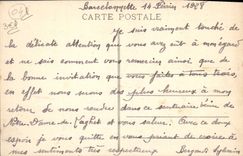 Barcelonnette 14 Février 1928
CARTE POSTALE
je suis vraiment touché de
la délicate attention que vous avez eit à mon égard
et ne sais comment vous remercier ainsi que de
la bonne invitation que vous faites à tous trois,
en effet nous serons des plus heureux à mon
retour de nous rendre dans ce sanctuaire
Notre Dame de et vous saluer. Avec ce doux
espoir je vous quitte en vous priant de croire à
mes sentiments très respectueux